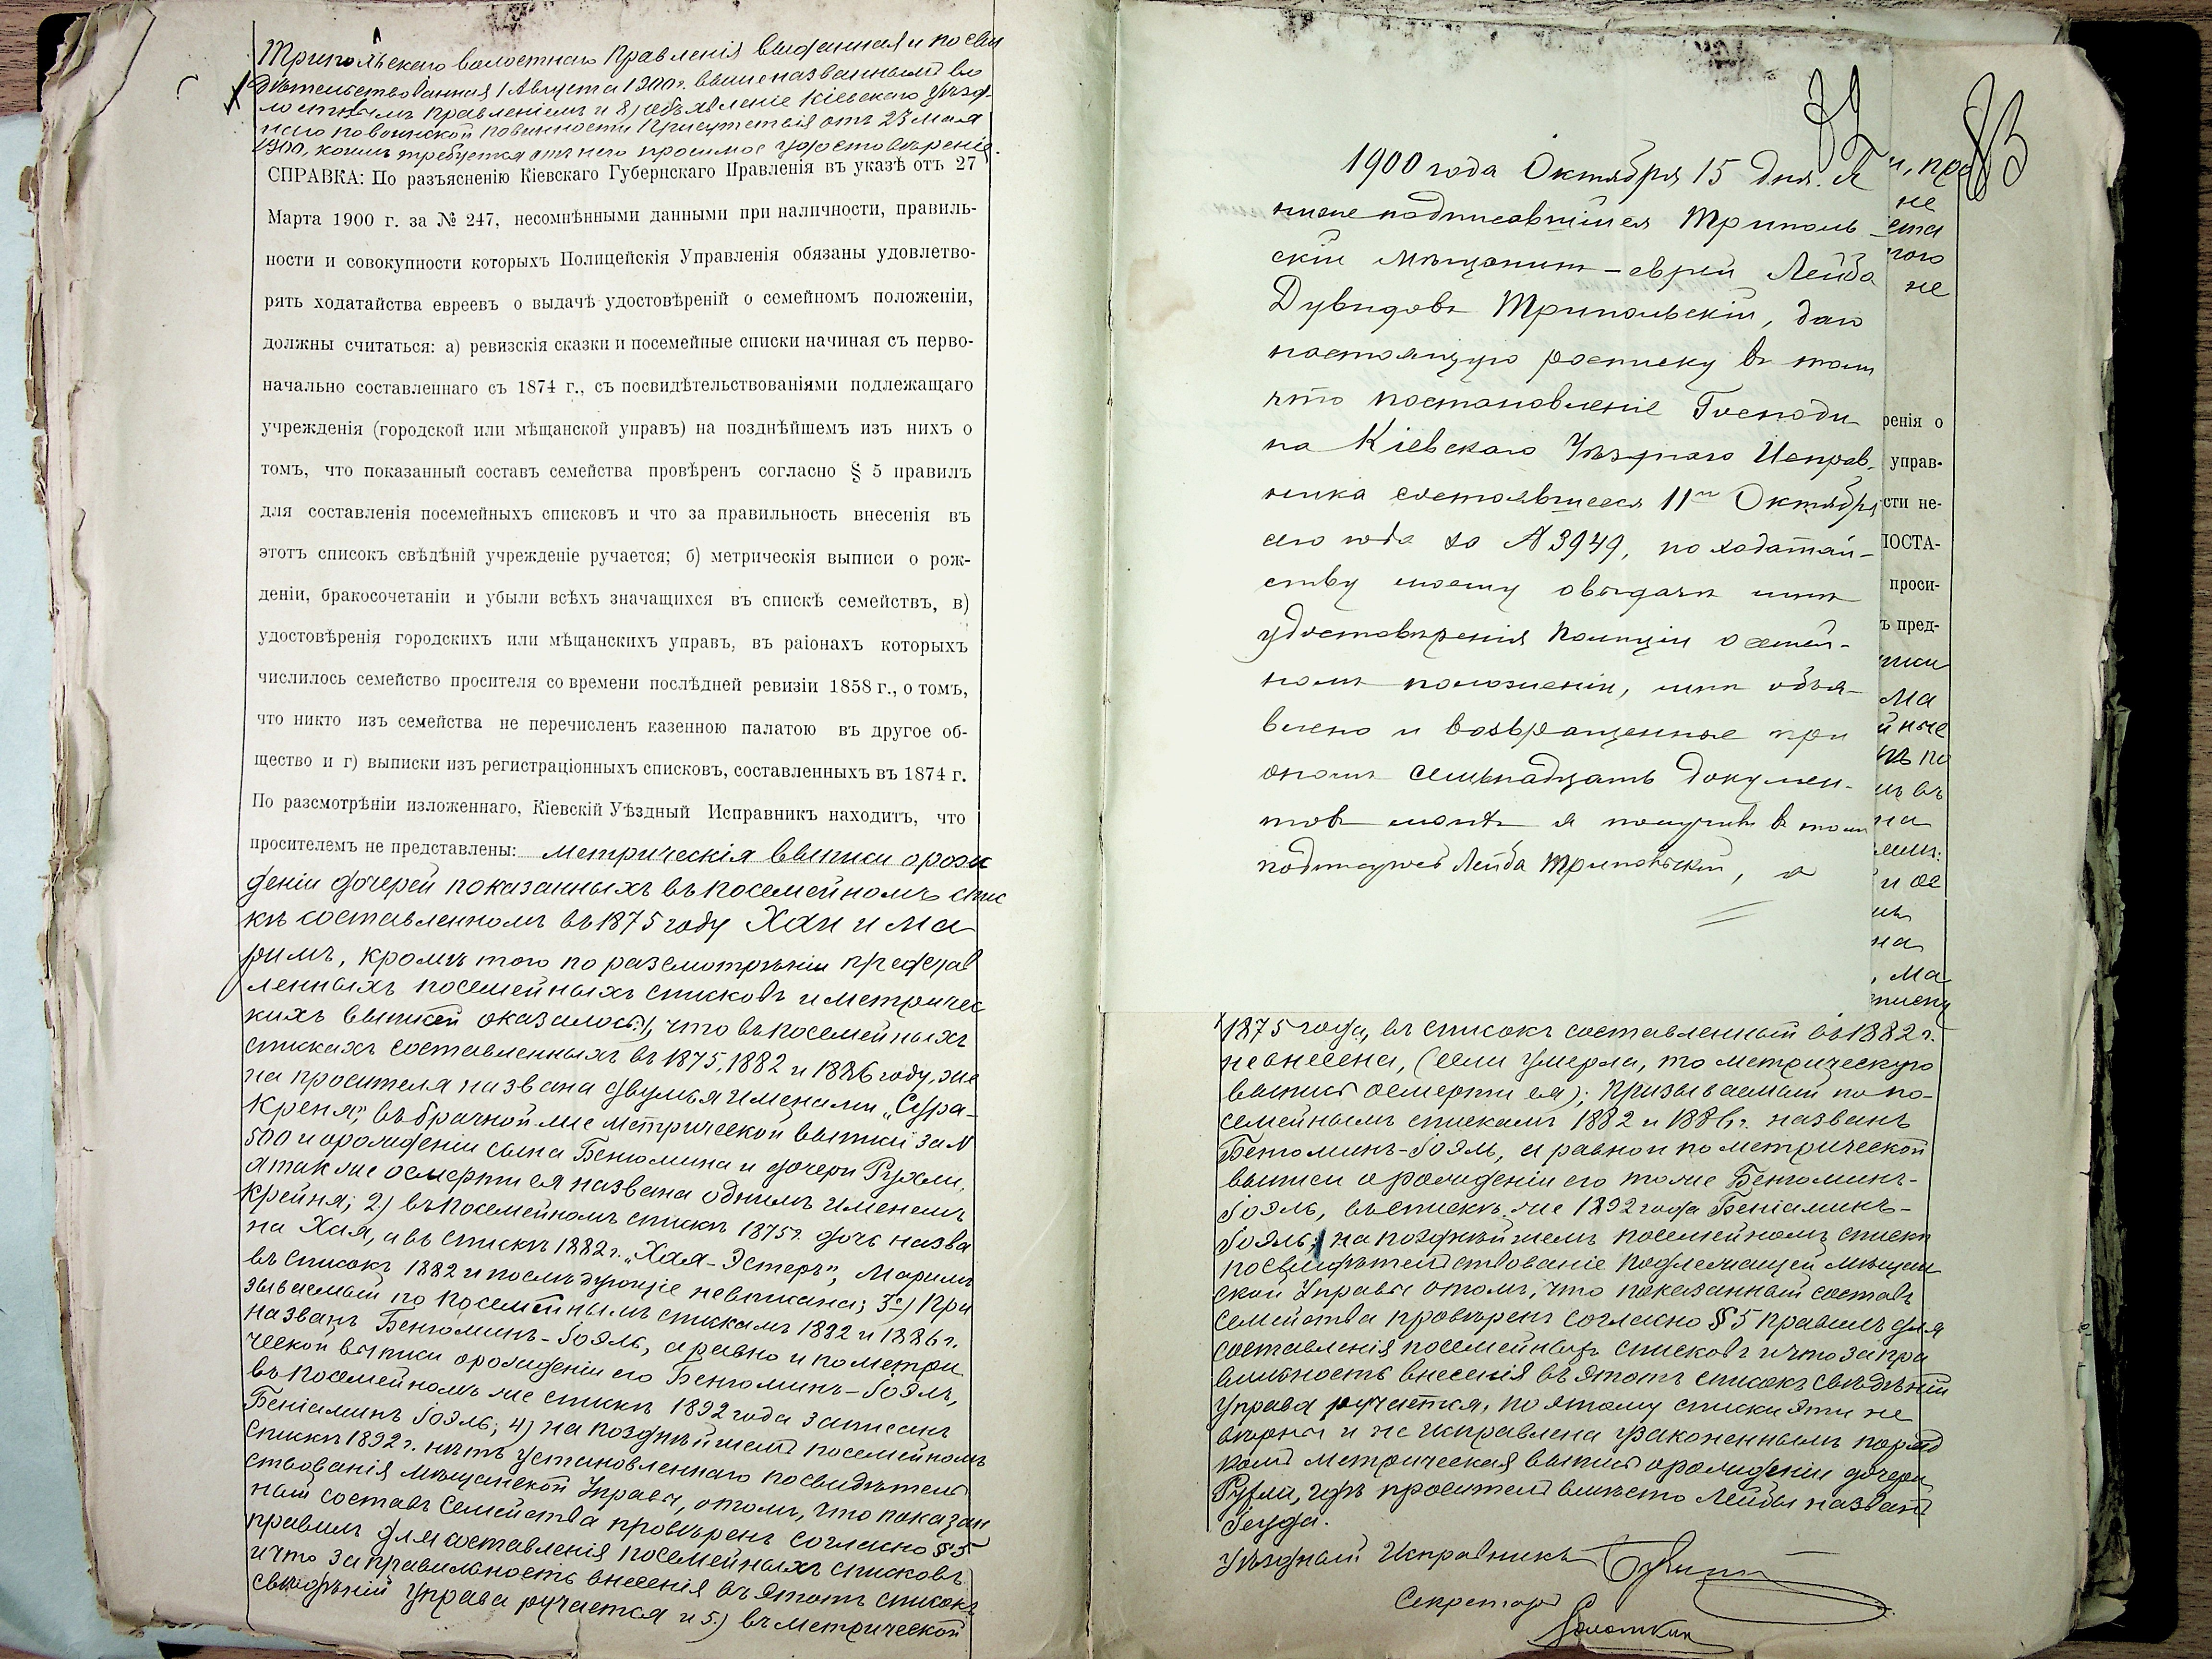 Трипольскаго волостнаго Правленія выданная и посви
дѣтельствованная 1 Августа 1900 г. вышеназваннымъ во
лостнымъ Правленіемъ и 8) объявленіе Кіевскаго Уѣзд-
наго по воинской повинности Присутствія отъ 23 Мая
1900, коимъ требуется отъ него просимое удостовѣреніе.
СПРАВКА: По разъясненію Кіевскаго Губернскаго Правленія въ указѣ отъ 27
Марта 1900 г. за № 247, несомнѣнными данными при наличности, правиль-
ности и совокупности которыхъ Полицейскія Управленія обязаны удовлетво-
рять ходатайства евреевъ о выдачѣ удостовѣреній о семейномъ положеніи,
должны считаться: а) ревизскія сказки и посемейные списки начиная съ перво-
начально составленнаго съ 1874 г., съ посвидѣтельствованіями подлежащаго
учрежденія (городской или мѣщанской управъ) на позднѣйшемъ изъ нихъ о
томъ, что показанный составъ семейства провѣренъ согласно § 5 правилъ
для составленія посемейныхъ списковъ и что за правильность внесенія въ
этотъ списокъ свѣдѣній учрежденіе ручается; б) метрическія выписи о рож-
деніи, бракосочетаніи и убыли всѣхъ значащихся въ спискѣ семействъ, в)
удостовѣренія городскихъ или мѣщанскихъ управъ, въ раіонахъ которыхъ
числилось семейство просителя со времени послѣдней ревизіи 1858 г., о томъ,
что никто изъ семейства не перечисленъ казенною палатою въ другое об-
щество и г) выписки изъ регистраціонныхъ списковъ, составленныхъ въ 1874 г.
По разсмотрѣніи изложеннаго, Кіевскій Уѣздный Исправникъ находитъ, что
просителемъ не представлены: метрическія выписи о рож
деніи дочерей показанныхъ въ посемейномъ спис
кѣ составленномъ въ 1875 году Хаи и Ма
римъ, кромѣ того по разсмотрѣніи представ
ленныхъ посемейныхъ списковъ и метричес
кихъ выписей оказалось: 1) что въ посемейныхъ
спискахъ составленныхъ въ 1875, 1882 и 1886 году, же
на просителя названа двумя именами „Сура-
Креня", въ брачной же метрической выписи за №
500 и о рожденіи сына Бенюмина и дочери Рухли,
а так же о смерти ея названа однимъ именемъ
Крейня; 2) въ посемейномъ спискѣ 1875 г. дочь назва
на Хая, а въ спискѣ 1882 г. „Хая-Эстеръ", Маримъ
въ списокъ 1882 и послѣдующіе не вписана; 3) При
зываемый по посемейнымъ спискамъ 1882 и 1886 г.
названъ Бенюминъ-Іоэль, а равно и по метри
ческой выписи о рожденіи его Бенюминъ-Іоэль,
въ посемейномъ же спискѣ 1892 года записанъ
Беніаминъ Іоэль; 4) на позднѣйшемъ посемейномъ
спискѣ 1892 г. нѣтъ установленнаго посвидѣтель
ствованія Мѣщанской Управы, о томъ, что показан
ный составъ семейства провѣренъ согласно § 5
правилъ для составленія посемейныхъ списковъ
и что за правильность внесенія въ этотъ списокъ
свѣдѣній Управа ручается и 5) въ метрической
83
1900 года Октября 15 дня. Я
ниже подписавшійся Триполь-
скій мѣщанинъ-еврей Лейба
Дувидовъ Трипольскій, даю
настоящую росписку въ томъ
что постановленіе Господи
на Кіевскаго Уѣзднаго Исправ.
ника состоявшееся 11го Октября
сего года за № 3949, по ходатай-
ству моему о выдачѣ мнѣ
удостовѣренія Полиціи о семей-
номъ положеніи, мнѣ объя-
влено и возвращенные при
ономъ семьнадцать докумен-
товъ я получивъ въ томъ
подписуюсъ Лейба Трипольскій,
и, про
не
ста
того
не
ренія о
управ-
сти не-
ПОСТА-
проси-
ъ пред-
писи
Ма
йные
въ
на
на
, Ма
1875 года, въ списокъ составленный въ 1882 г.
не внесена, (если умерла, то метрическую
выпись о смерти ея); призываемый по по-
семейнымъ спискамъ 1882 и 1886 г. названъ
Бенюминъ-Іоэль, а равно и по метрической
выписи о рожденіи его тоже Бенюминъ-
Іоэль, въ спискѣ же 1892 года Беніаминъ-
Іоэль; на позднѣйшемъ посемейномъ спискѣ
посвидѣтельствованіе подлежащей мѣщан
ской Управы о томъ, что показанный составъ
семейства провѣренъ согласно § 5 правилъ для
составленія посемейныхъ списковъ и что за пра
вильность внесенія въ этотъ списокъ свѣдѣній
Управа ручается, по этому списки эти не
вѣрны и не исправлена узаконеннымъ поряд
комъ метрическая выпись о рожденіи дочери
Рухли, гдѣ проситель вмѣсто Лейбы названъ
Іегуда.
Уѣздный Исправникъ
Секретарь